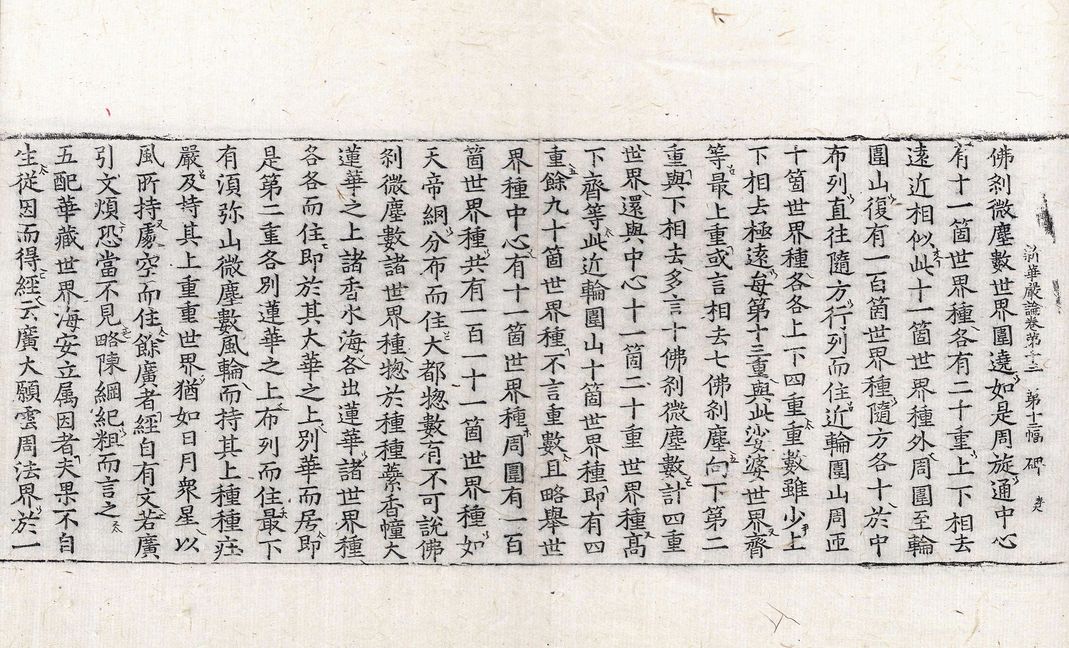 新華嚴論卷第十三 第十三幅 碑
佛刹微塵數世界圍遶如是周旋通中心
有十一箇世界種各有二十重上下相去
遠近相似此十一箇世界種外周圍至輪
圍山復有一百箇世界種隨方各十於中
布列直往隨方行列而住近輪圍山周帀
十箇世界種各各上下四重重數雖少上
下相去極遠每第十三重與此娑婆世界齊
等最上重或言相去七佛刹塵向下第二
重與下相去多言十佛刹微塵數計四重
世界還與中心十一箇二十重世界種高
下齊等此近輪圍山十箇世界種即有四
重餘九十箇世界種不言重數且略舉世
界種中心有十一箇世界種周圍有一百
箇世界種共有一百一十一箇世界種如
天帝網分布而住大都惣數有不可說佛
刹微塵數諸世界種惣於種種蘂香幢大
蓮華之上諸香水海各出蓮華諸世界種
各各而住即於其大華之上別華而居即
是第二重各別蓮華之上布列而住最下
有須弥山微塵數風輪而持其上種種莊
嚴及持其上重重世界猶如日月衆星以
風所持處空而住餘廣者經自有文若廣
引文煩恐當不見略陳綱紀粗而言之
五配華藏世界海安立属因者夫果不自
生從因而得經云廣大願雲周法界於一